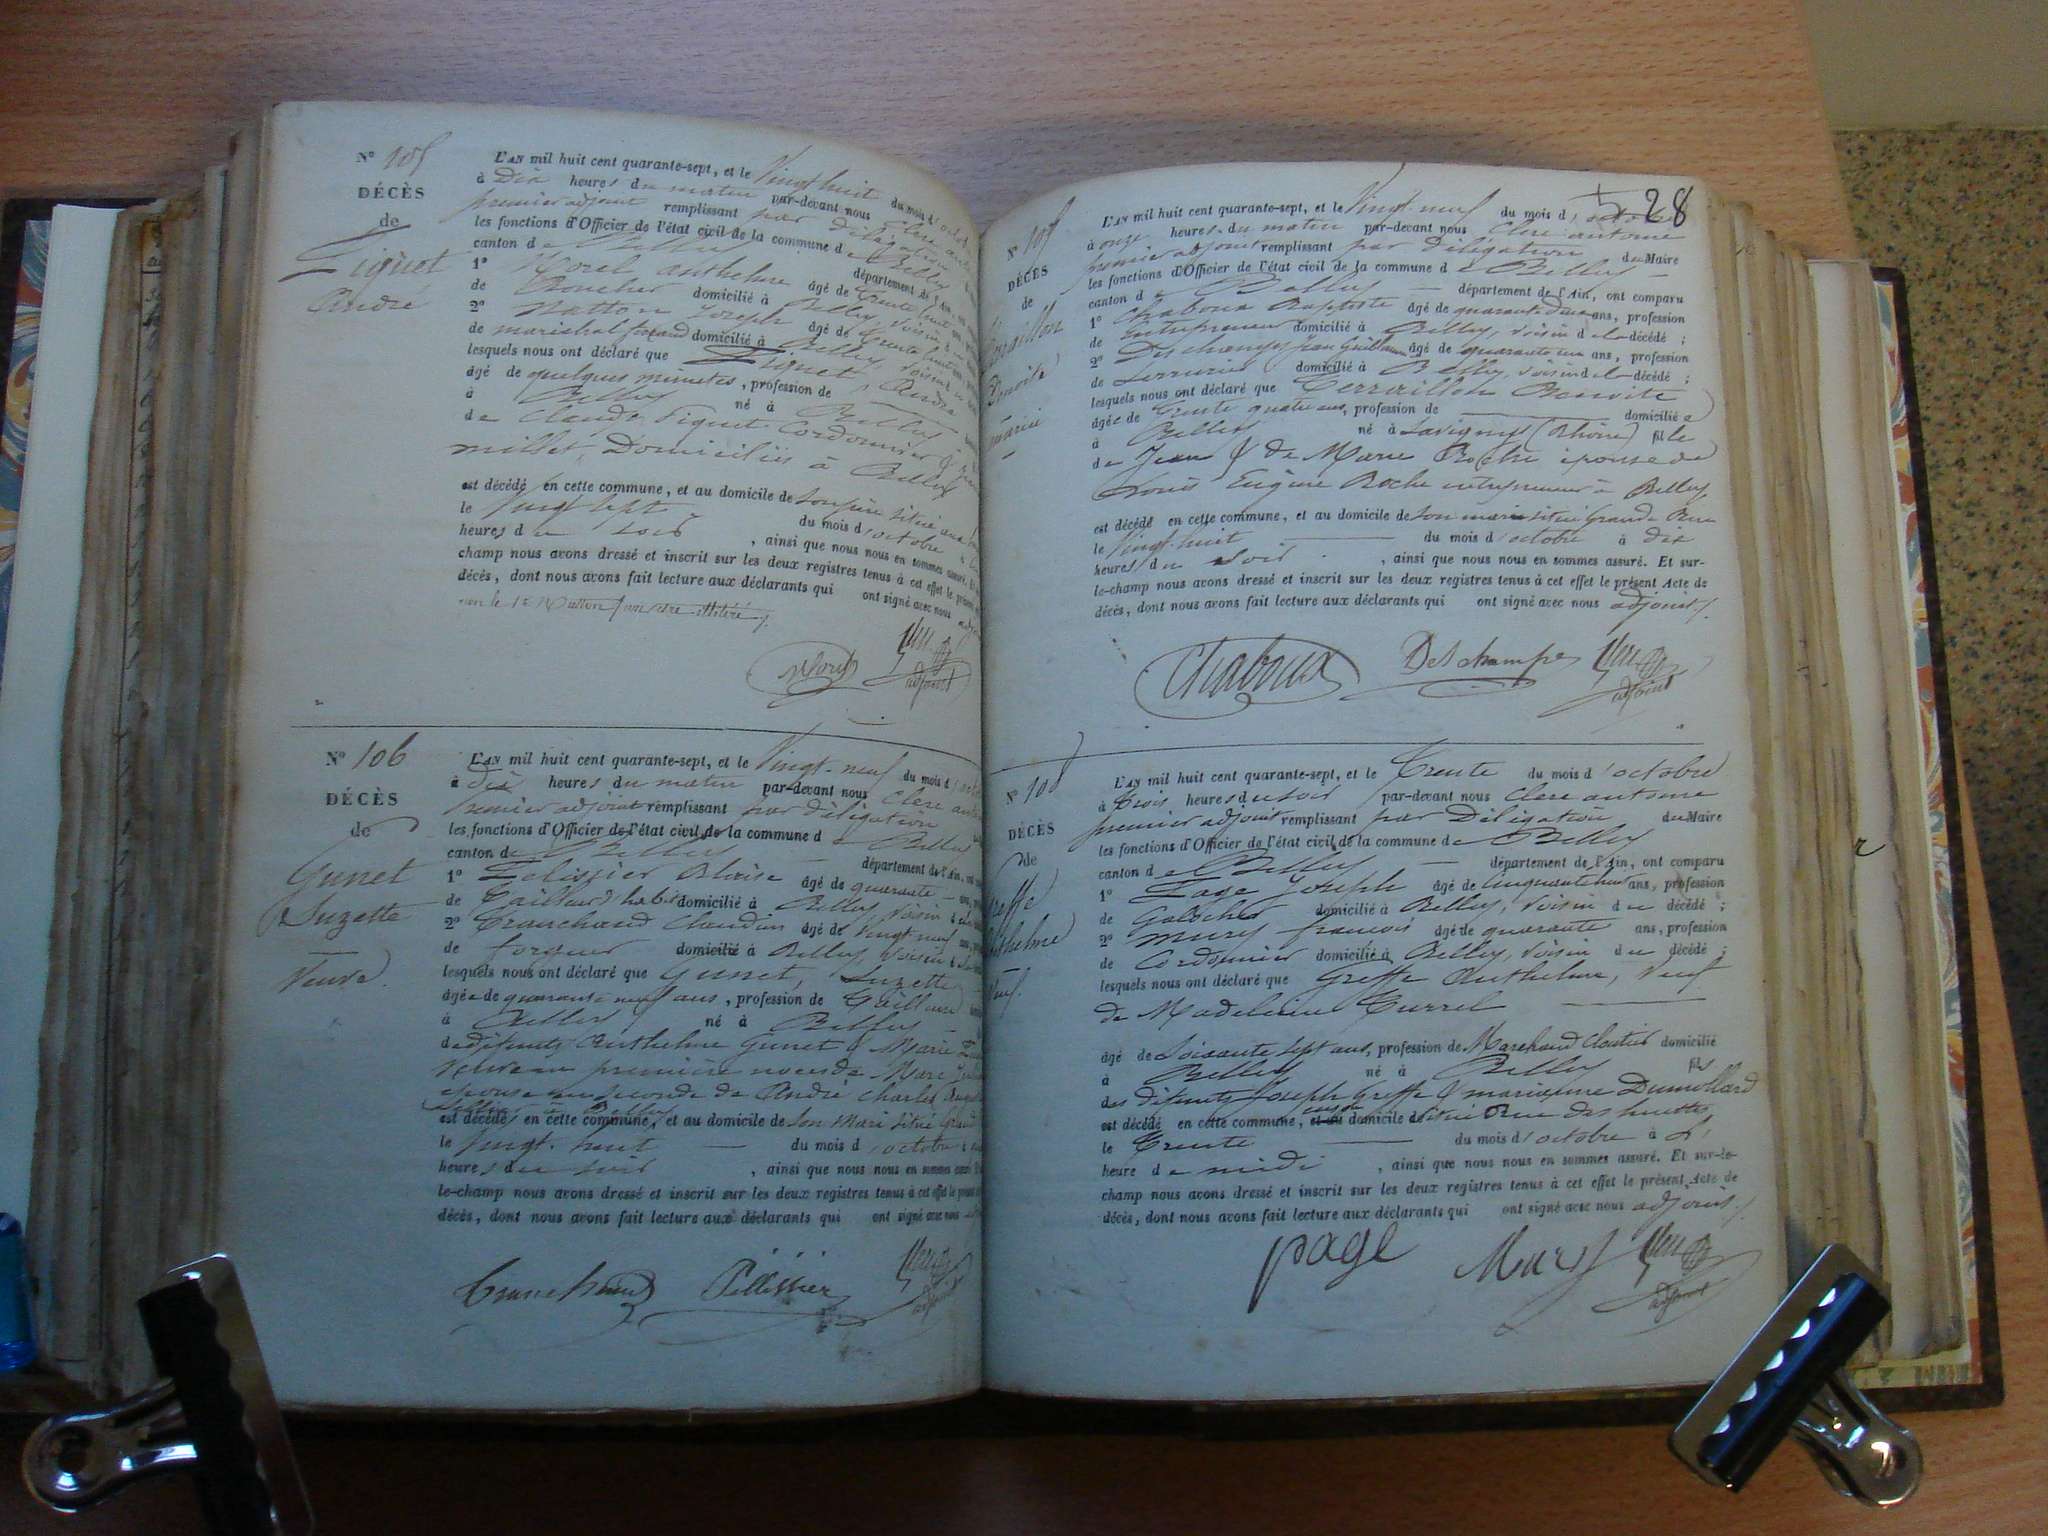 N° 105
DÉCÈS
de
Piguet
André
L'AN mil huit cent quarante-sept, et le Vingt huit du mois d'octob
à Dix heures du matin par-devant nous Clerc
premier adjoint remplissant par délégation
les fonctions d'Officier de l'état civil de la commune de Belley
canton de Belley département de l'Ain,
1° Morel anthelme âgé de trente huit
de Boucher domicilié à Belley, Voisin
2° Matton Joseph âgé de trente
de maréchal ferrand domicilié à Belley, Voisin
lesquels nous ont déclaré que Piguet, André
âgé de quelques minutes, profession de
à Belley né à Belley
de Claude Piguet Cordonnier &
millet, Domiciliés à Belley
est décédé en cette commune, et au domicile de son père situé
le Vingt sept du mois d'octobre
heures du soir, ainsi que nous nous en sommes assuré.
champ nous avons dressé et inscrit sur les deux registres tenus à cet effet le présent
décès, dont nous avons fait lecture aux déclarants qui ont signé avec nous adjoint
non le Sr Matton pour être illitéré
Morel
Clerc
adjoint
N° 106
DÉCÈS
de
Gunet
Suzette
Veuve.
L'AN mil huit cent quarante-sept, et le Vingt-neuf du mois d'
à dix heures du matin par-devant nous Clerc
premier adjoint remplissant par délégation
les fonctions d'Officier de l'état civil de la commune de Belley
canton de Belley département de l'Ain,
1° Pelissier Blaise âgé de quarante
de Tailleur d'habit domicilié à Belley, Voisin
2° Tranchand Claudius âgé de Vingt neuf
de forgeur domicilié à Belley, Voisin
lesquels nous ont déclaré que Gunet, Suzette
âgée de quarante neuf ans, profession de Tailleuse
à Belley né à Belley
de défunts Anthelme Gunet & Marie
Veuve en première noces de Marc
épouse en seconde de André Charles
est décédé en cette commune, et au domicile de son mari situé Grand
le Vingt-huit du mois d'octobre
heures du soir, ainsi que nous nous en sommes assuré
le-champ nous avons dressé et inscrit sur les deux registres tenus à cet effet le présent
décès, dont nous avons fait lecture aux déclarants qui ont signé avec nous
Tranchand
Pélissier
Clerc
adjoint
28
N° 107
DÉCÈS
de
Terraillon
Benoite
marié
L'AN mil huit cent quarante-sept, et le Vingt-neuf du mois d'octobre
à onze heures du matin par-devant nous Clerc antoine
premier adjoint remplissant par délégation du Maire
les fonctions d'Officier de l'état civil de la commune de Belley
canton de Belley département de l'Ain, ont comparu
1° Chaboux Baptiste âgé de quarante deux ans, profession
de Entrepreneur domicilié à Belley, Voisin de la décédé;
2° Deschamps, Jean Guillaume âgé de quarante un ans, profession
de Serrurier domicilié à Belley, Voisin de la décédé;
lesquels nous ont déclaré que Terraillon Benoite
âgée de trente quatre ans, profession de domicilié
à Belley né à Savigny (Rhône) fille
de Jean & de Marie Roche épouse de
Louis Eugène Roche entrepreneur à Belley
est décédé en cette commune, et au domicile de son mari situé Grande Rue
le Vingt-huit du mois d'octobre à dix
heures du soir, ainsi que nous nous en sommes assuré. Et sur-
le-champ nous avons dressé et inscrit sur les deux registres tenus à cet effet le présent Acte de
décès, dont nous avons fait lecture aux déclarants qui ont signé avec nous adjoint
Chaboux
Deschamps
Clerc
adjoint
N° 108
DÉCÈS
de
Greffe
Anthelme
Veuf.
L'AN mil huit cent quarante-sept, et le Trente du mois d'octobre
à Trois heures du soir par-devant nous Clerc antoine
premier adjoint remplissant par Délégation du Maire
les fonctions d'Officier de l'état civil de la commune de Belley
canton de Belley département de l'Ain, ont comparu
1° Page Joseph âgé de cinquante huit ans, profession
de Galocher domicilié à Belley, Voisin du décédé;
2° Mury françois âgé de quarante ans, profession
de Cordonnier domicilié à Belley, Voisin du décédé;
lesquels nous ont déclaré que Greffe Anthelme, Veuf
de Madeleine Currel
âgé de Soixante sept ans, profession de Marchand Cloutier domicilié
à Belley né à Belley fils
des défunts Joseph Greffe & marianne Dumollard
est décédé en cette commune, et au domicile de situé Rue des
le Trente du mois d'octobre à
heure de midi, ainsi que nous nous en sommes assuré. Et sur-le-
champ nous avons dressé et inscrit sur les deux registres tenus à cet effet le présent Acte de
décès, dont nous avons fait lecture aux déclarants qui ont signé avec nous adjoint
page
Mury
Clerc
adjoint